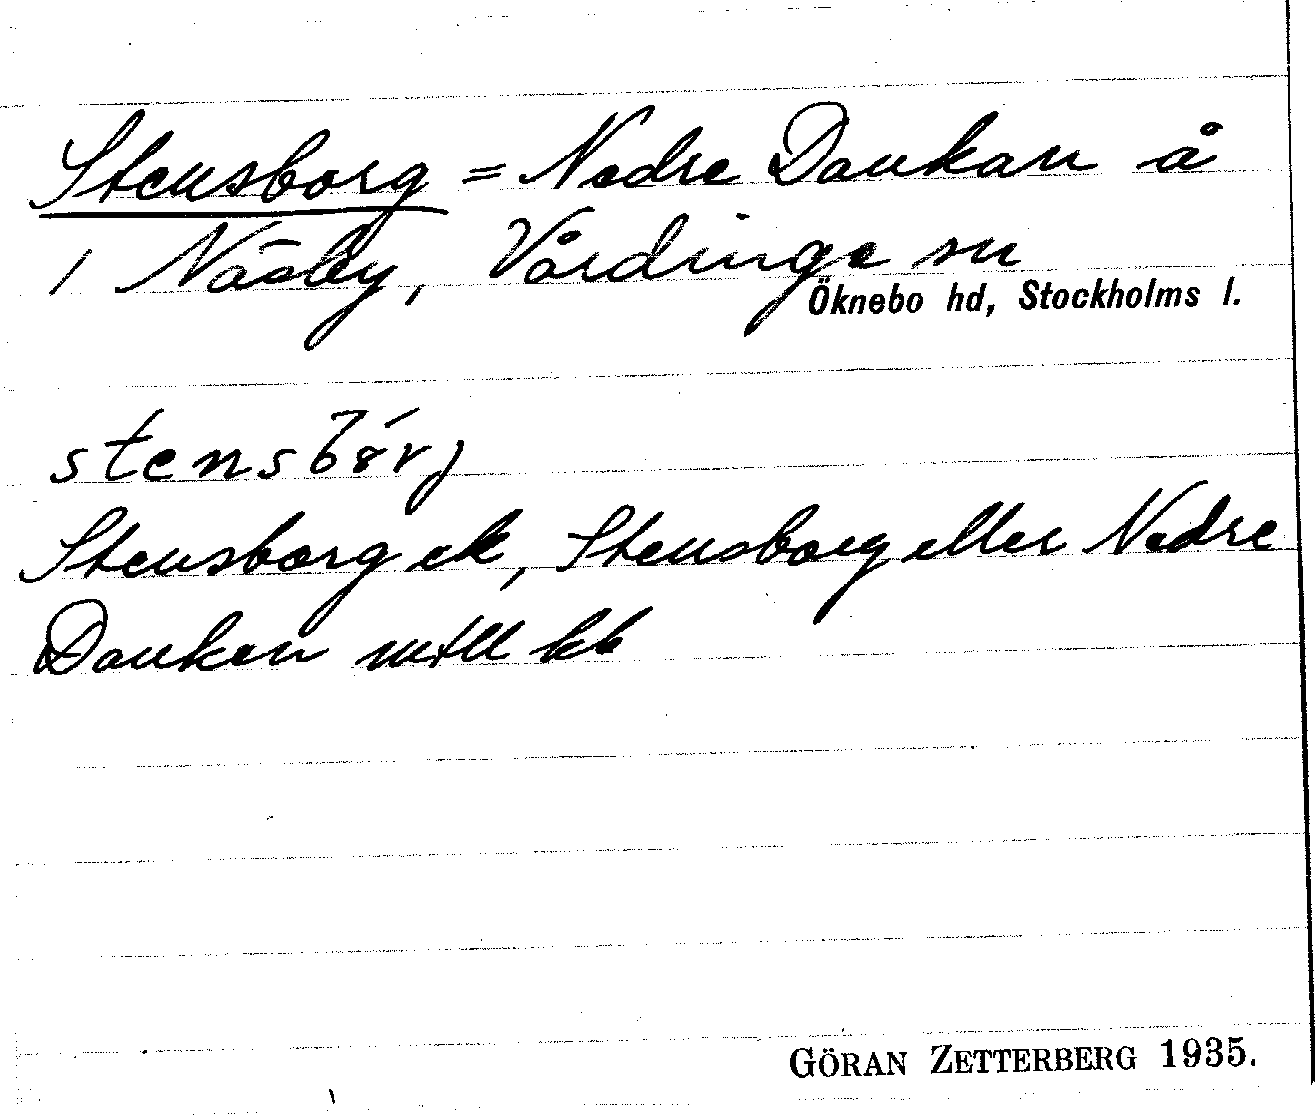 Stensborg = Nedre Dankan å
1 Näsby, Vårdinge sn
Öknebo hd, Stockholms l.
stensbórj
Stensborg ek, Stensborg eller Nedre
Dankan mtll kb
GÖRAN ZETTERBERG 1935.